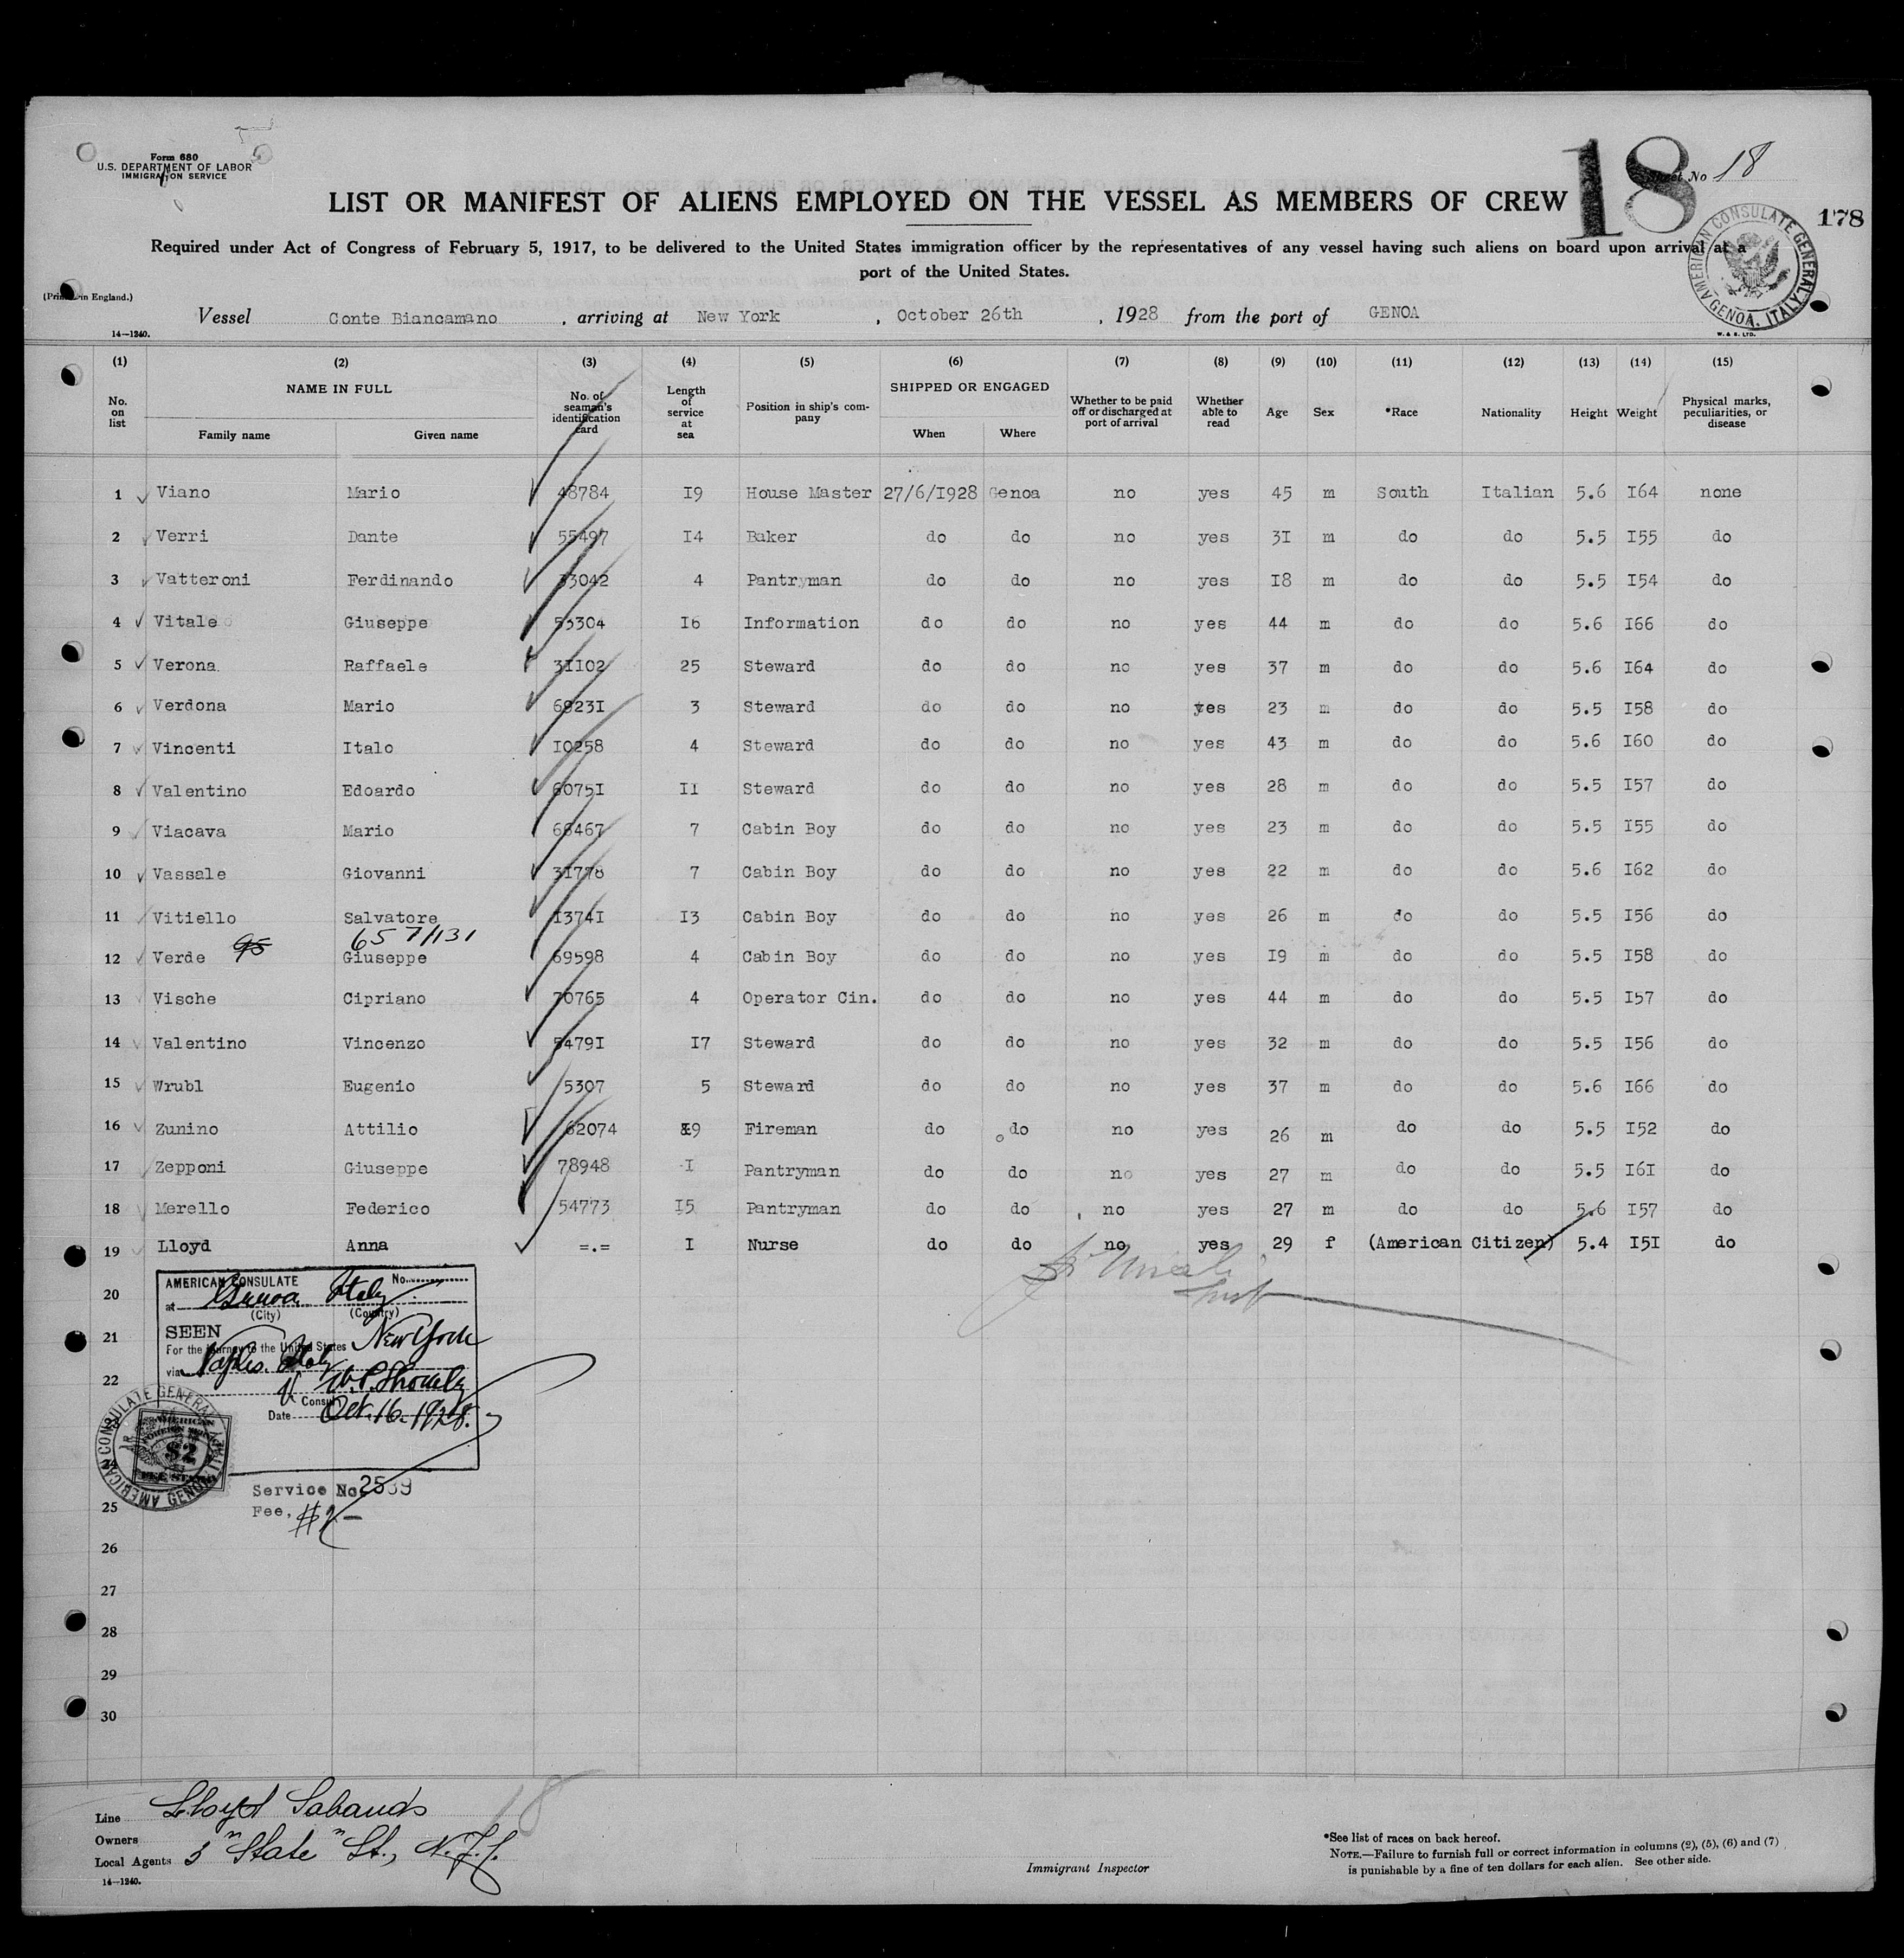 Form 680
U.S. DEPARTMENT OF LABOR
IMMIGRATION SERVICE
18
No 18
LIST OR MANIFEST OF ALIENS EMPLOYED ON THE VESSEL AS MEMBERS OF CREW
178
Required under Act of Congress of February 5, 1917, to be delivered to the United States immigration officer by the representatives of any vessel having such aliens on board upon arrival at a
port of the United States.
AMERICAN CONSULATE GENERAL GENOA, ITALY
(Printed in England.)
Vessel Conte Biancamano, arriving at New York, October 26th, 1928 from the port of GENOA
14—1240.
W. & S. LTD.
(1) (2) (3) (4) (5) (6) (7) (8) (9) (10) (11) (12) (13) (14) (15)
No. on list NAME IN FULL Family name Given name No. of seaman's identification card Length of service at sea Position in ship's company SHIPPED OR ENGAGED When Where Whether to be paid off or discharged at port of arrival Whether able to read Age Sex *Race Nationality Height Weight Physical marks, peculiarities, or disease
1 Viano Mario 48784 19 House Master 27/6/1928 Genoa no yes 45 m South Italian 5.6 164 none
2 Verri Dante 55497 14 Baker do do no yes 31 m do do 5.5 155 do
3 Vatteroni Ferdinando 33042 4 Pantryman do do no yes 18 m do do 5.5 154 do
4 Vitale Giuseppe 53304 16 Information do do no yes 44 m do do 5.6 166 do
5 Verona Raffaele 31102 25 Steward do do no yes 37 m do do 5.6 164 do
6 Verdona Mario 68231 3 Steward do do no yes 23 m do do 5.5 158 do
7 Vincenti Italo 10258 4 Steward do do no yes 43 m do do 5.6 160 do
8 Valentino Edoardo 60751 11 Steward do do no yes 28 m do do 5.5 157 do
9 Viacava Mario 66467 7 Cabin Boy do do no yes 23 m do do 5.5 155 do
10 Vassale Giovanni 31778 7 Cabin Boy do do no yes 22 m do do 5.6 162 do
11 Vitiello Salvatore 13741 13 Cabin Boy do do no yes 26 m do do 5.5 156 do
65 7/131
12 Verde Giuseppe 69598 4 Cabin Boy do do no yes 19 m do do 5.5 158 do
13 Vische Cipriano 70765 4 Operator Cin. do do no yes 44 m do do 5.5 157 do
14 Valentino Vincenzo 54791 17 Steward do do no yes 32 m do do 5.5 156 do
15 Wrubl Eugenio 5307 5 Steward do do no yes 37 m do do 5.6 166 do
16 Zunino Attilio 62074 9 Fireman do do no yes 26 m do do 5.5 152 do
17 Zepponi Giuseppe 78948 1 Pantryman do do no yes 27 m do do 5.5 161 do
18 Merello Federico 54773 15 Pantryman do do no yes 27 m do do 5.6 157 do
19 Lloyd Anna =.= 1 Nurse do do no yes 29 f (American Citizen) 5.4 151 do
20
21
22
24
25
26
27
28
29
30
AMERICAN CONSULATE No.
at Genoa Italy
(City) (Country)
SEEN
For the journey to the United States New York
via Naples, Italy
Consul
Date Oct. 16. 1928.
AMERICAN CONSULATE GENERAL GENOA ITALY
AMERICAN FOREIGN SERVICE $2 FEE STAMP
Service No 2539
Fee, $2—
18
Line Lloyd Sabaudo
Owners
Local Agents 3 "State" St., N.Y.C.
14—1240.
Immigrant Inspector
*See list of races on back hereof.
NOTE.—Failure to furnish full or correct information in columns (2), (5), (6) and (7)
is punishable by a fine of ten dollars for each alien. See other side.